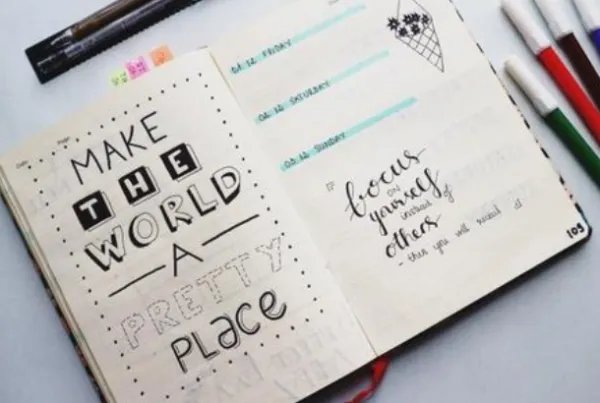 MAKE
THE
WORLD
A
PRETTY
PLACE
01.12 FRIDAY
02.12 SATURDAY
03.12 SUNDAY
focus
on
yourself
instead of
others
- then you will
105